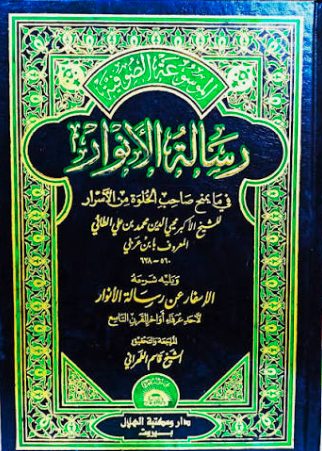 الموسوعة الصوفية
رسالة الأنوار
في ما يمنح صاحب الخلوة من الأسرار
للشيخ الأكبر محيي الدين محمد بن علي الطائي
المعروف بابن عربي
٥٦٠ - ٦٣٨
ويليه شرحه
الإسفار عن رسالة الأنوار
لأحد عرفاء أواخر القرن التاسع
المراجعة والتحقيق
الشيخ قاسم الطهراني
دار ومكتبة الهلال
بيروت